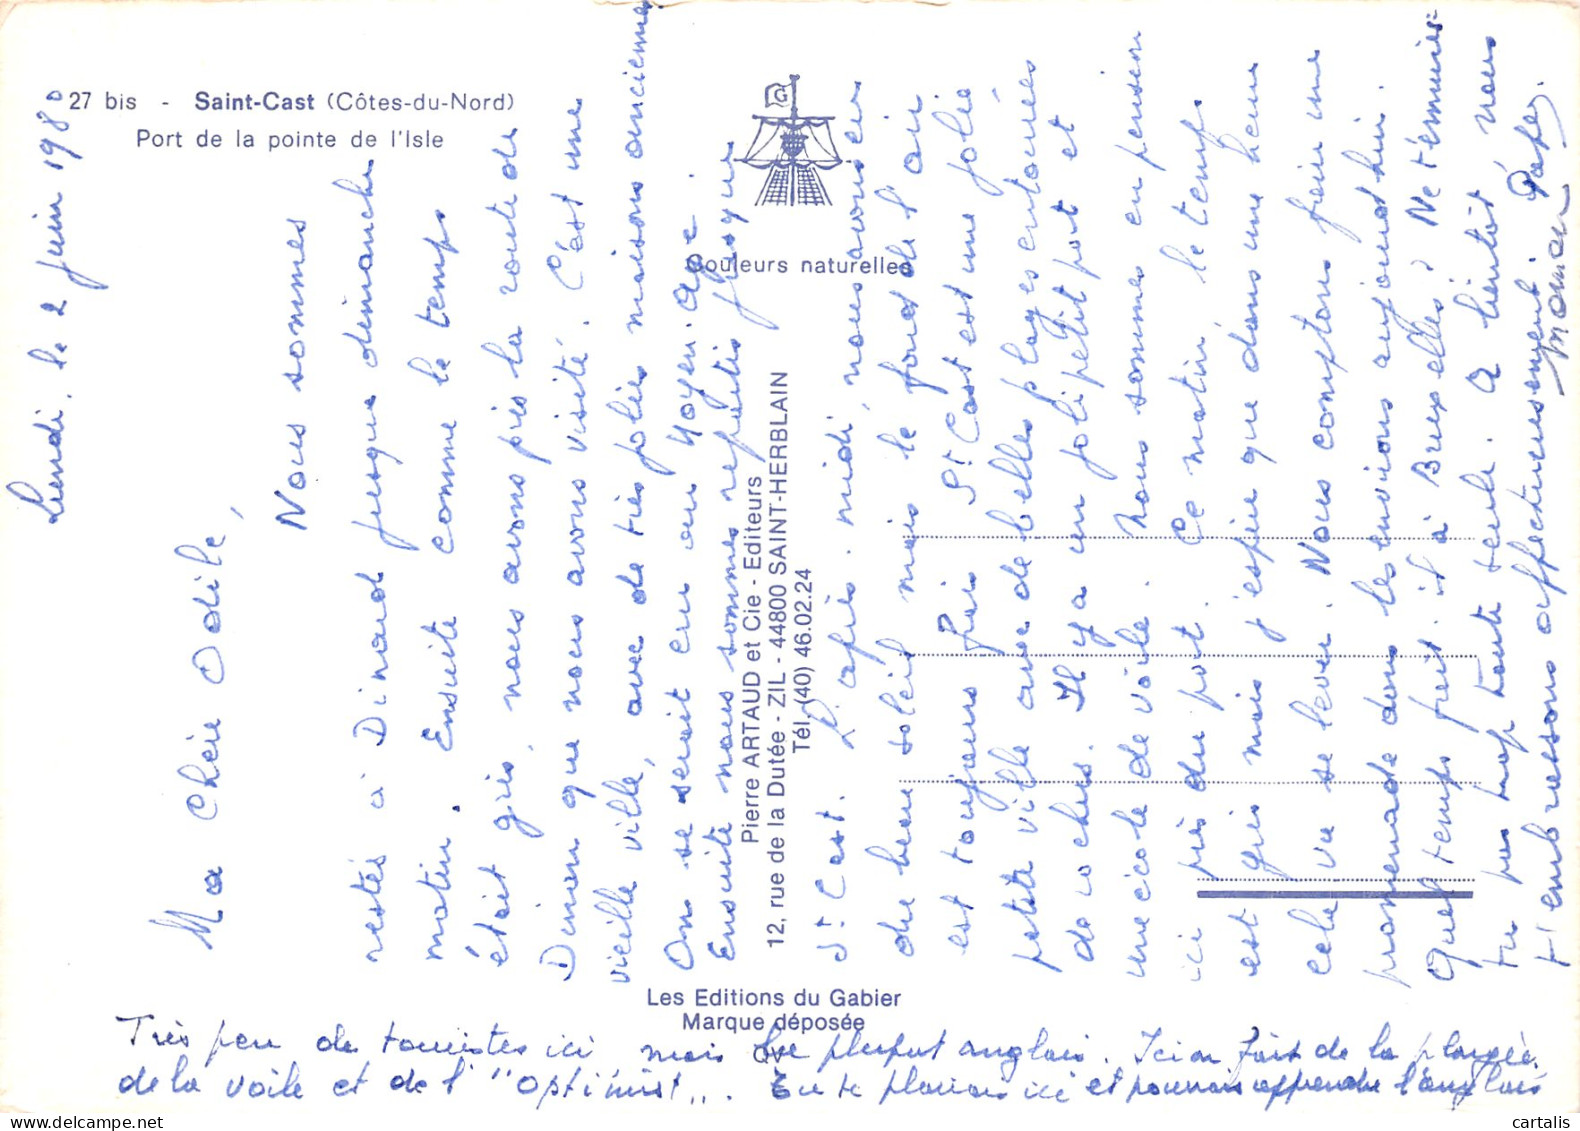 27 bis - Saint-Cast (Côtes-du-Nord)
Port de la pointe de l'Isle
Couleurs naturelles
Pierre ARTAUD et Cie - Editeurs
12, rue de la Dutée - ZIL - 44800 SAINT-HERBLAIN
Tél. (40) 46.02.24
Les Editions du Gabier
Marque déposée
Lundi, le 2 juin 1980
Ma chère Odile,
Nous sommes
restés à Dinard jusque dimanche
matin. Ensuite comme le temps
était gris, nous avons pris la route de
Dinan que nous avons visité. C'est une
vieille ville, avec de très jolies maisons anciennes
On se serait cru au Moyen. Age.
Ensuite nous sommes repartis jusqu'
St Cast. L'après. midi, nous avons eu
du beau soleil mais le fond de l'air
est toujours frais. St Cast est une jolie
petite ville avec de belles plages entourées
de rochers. Il y a un joli petit port et
une école de voile. Nous sommes en pension
ici près du port. Ce matin, le temps
est gris mais j'espère que dans une heure
cela va se lever. Nous comptons faire une
promenade dans les environs aujourd'hui.
Quel temps fait-il à Bruxelles? Ne t'ennuies-
tu pas trop toute seule. A bientôt nous
t'embrassons affectueusement.
Maman Papy.
Très peu de touristes ici mais la plupart anglais. Ici on fait de la plongée
de la voile et de l'"optimist". tu te plairais ici et pourrais apprendre l'anglais
cartalis